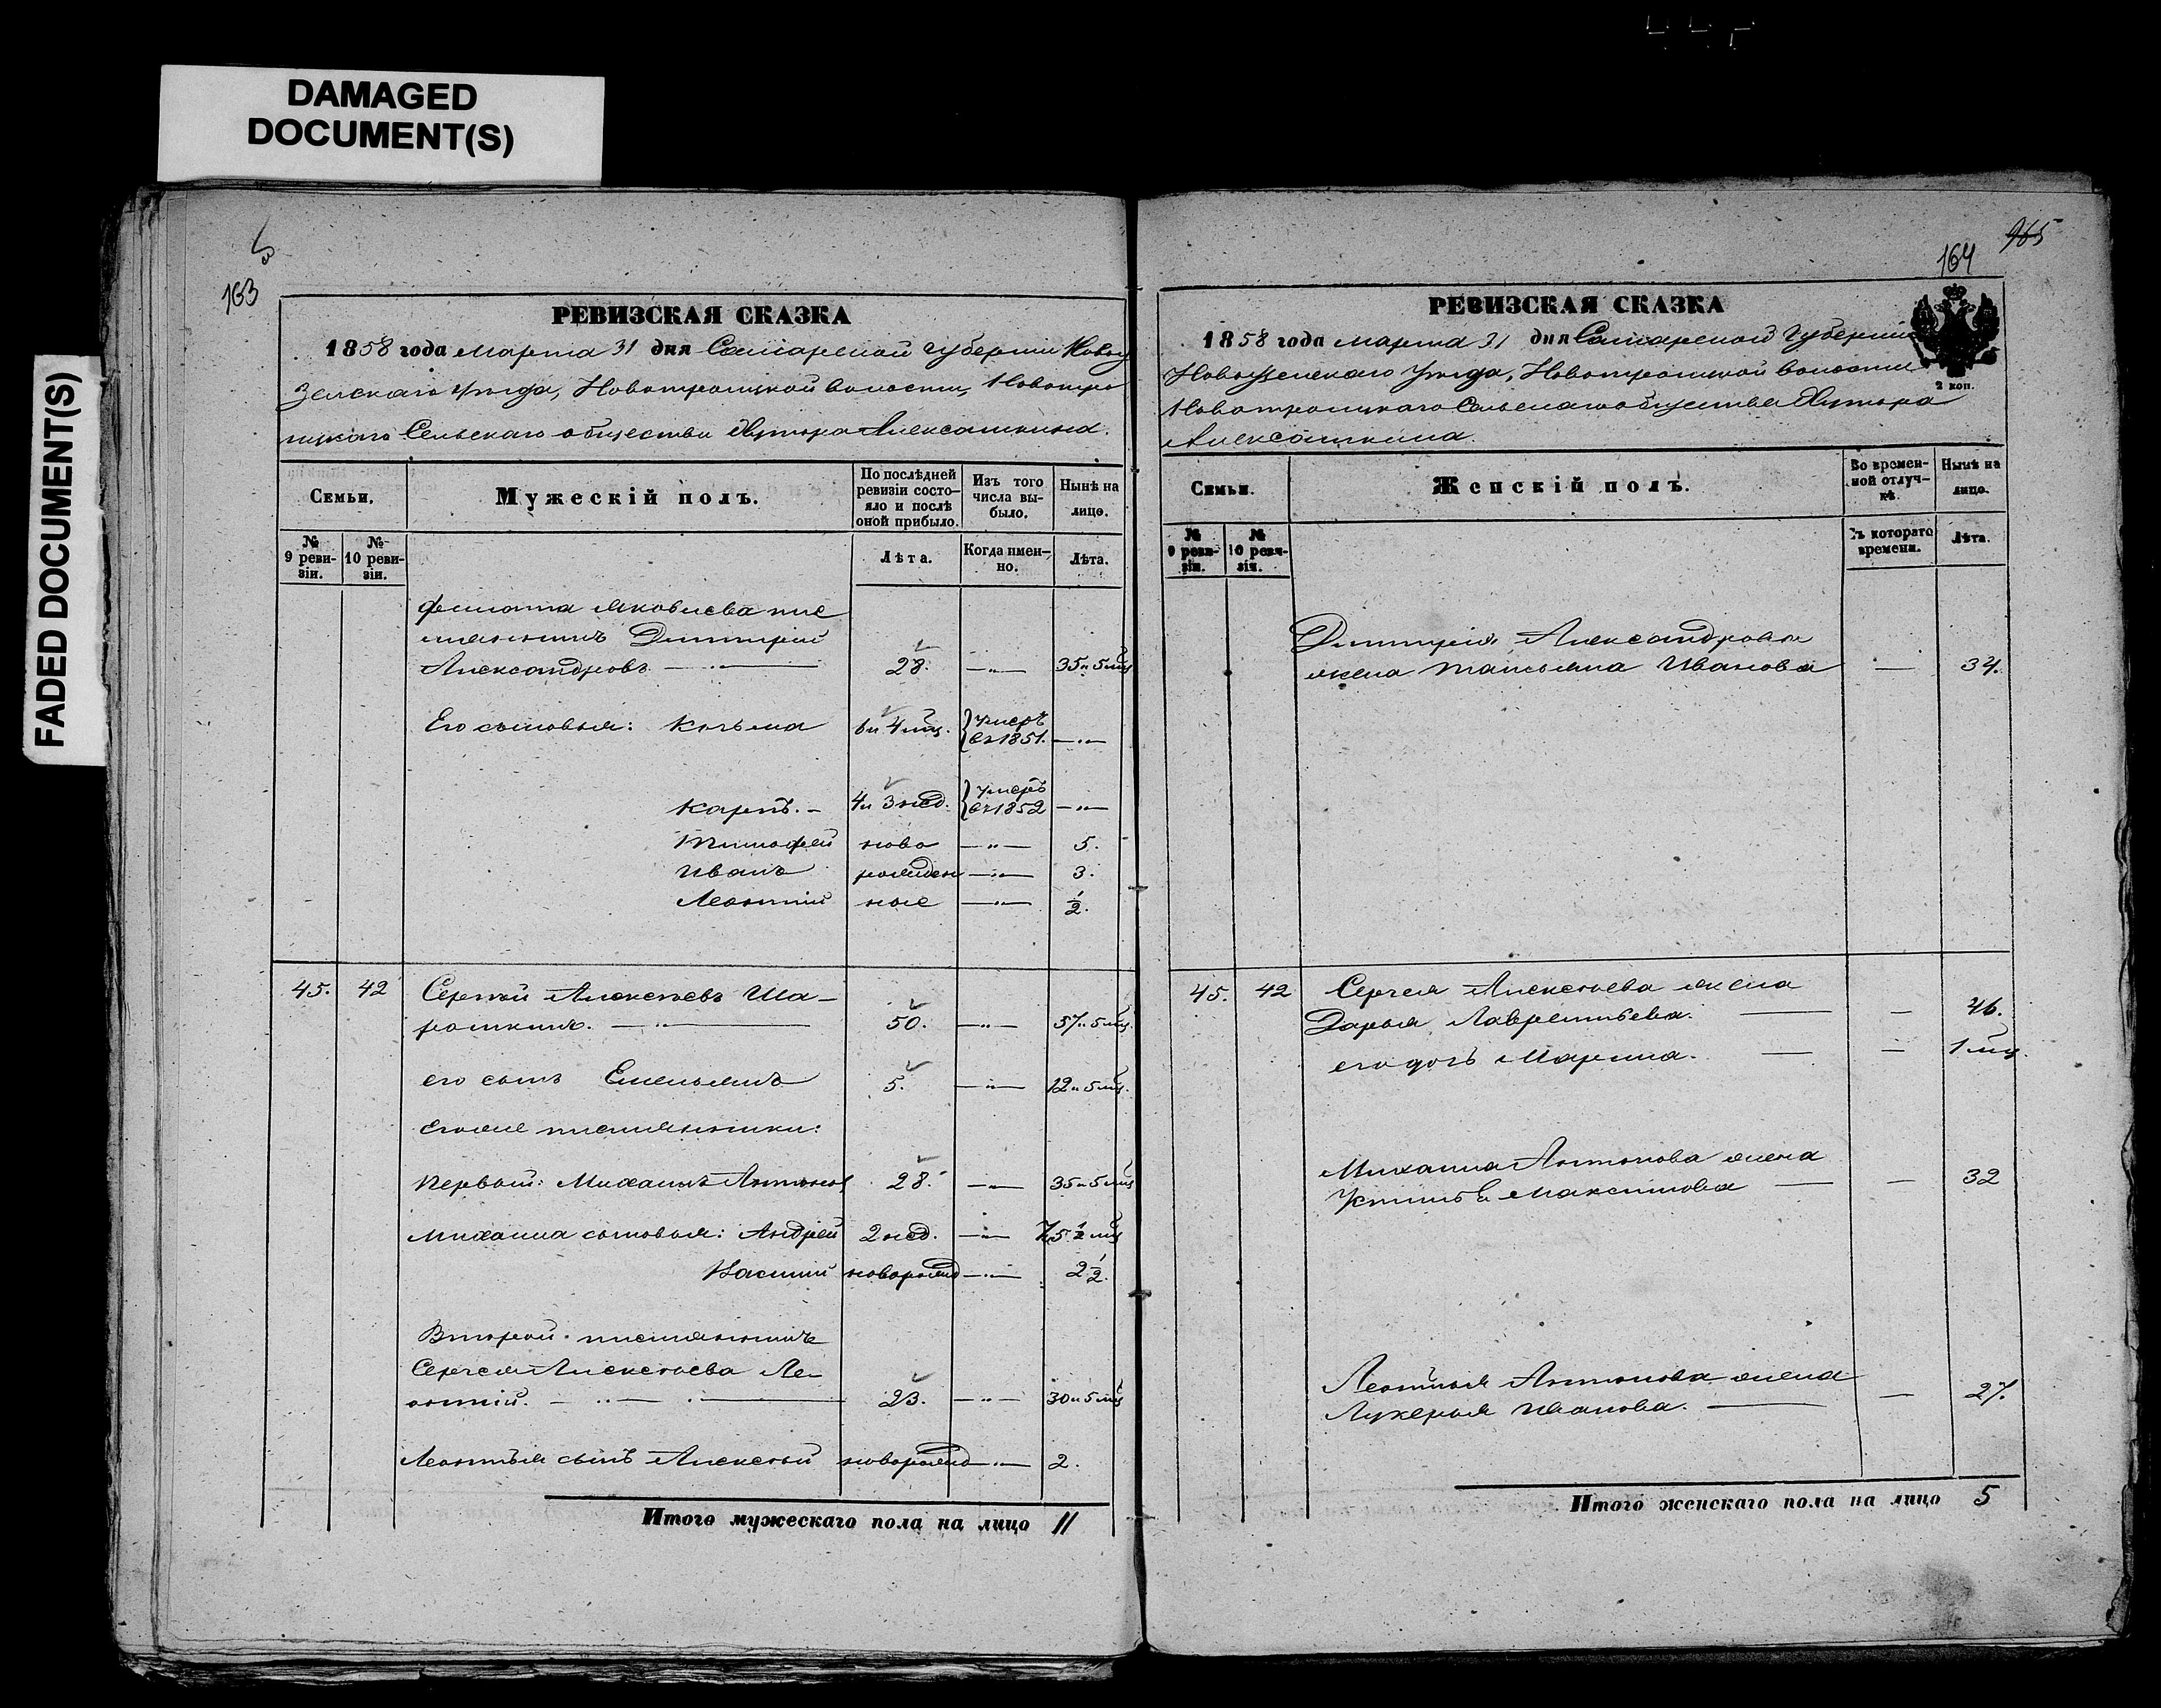 DAMAGED
DOCUMENT(S)
FADED DOCUMENT(S)
163
РЕВИЗСКАЯ СКАЗКА
1858 года марта 31 дня Самарской губернии Новоу
зенскаго уѣзда, Новотроицкой волости, Новотро
ицкаго Сельскаго общества Хутора Алексашкина.
Семьи.
Мужескій полъ.
По послѣдней ревизіи состояло и послѣ оной прибыло.
Изъ того числа выбыло.
Нынѣ на лицо.
№ 9 ревизіи.
№ 10 ревизіи.
Лѣта.
Когда именно.
Лѣта.
Филата Яковлева пле
мянникъ Дмитрій
Александровъ. 28. 35 и 5 мц
Его сыновья: Козьма 6 и 4 мц. умеръ въ 1851.
Карпъ. 4 и 3 нед. умеръ въ 1852
Тимофей ново 5.
Иванъ рожден 3.
Леонтій ные 1/2.
45. 42 Сергѣй Алексѣевъ Ша-
рошкинъ. 50. 57 и 5 мц.
его сынъ Емельянъ 5. 12 и 5 мц.
его же племянники:
Первый: Михаилъ Антонов 28. 35 и 5 мц
Михаила сыновья: Андрей 2 нед. 7, 5 1/2 мц
Василій новорожд 2 1/2.
Второй племянникъ
Сергея Алексѣева Ле-
онтій. 23. 30 и 5 мц
Леонтья сынъ Алексѣй новорожд 2.
Итого мужескаго пола на лицо 11
165
164
РЕВИЗСКАЯ СКАЗКА
1858 года марта 31 дня Самарской губерніи
Новоузенскаго уѣзда, Новотроицкой волости
Новотроицкаго Сельскаго общества Хутора
Алексашкина.
2 коп.
Семьи.
Женскій полъ.
Во временной отлучкѣ.
Нынѣ на лицо.
№ 9 ревизіи.
№ 10 ревизіи.
Съ котораго времени.
Лѣта.
Дмитрія Александрова
жена Татьяна Иванова 34.
45. 42 Сергея Алексѣева жена
Дарья Лаврентьева. 46.
его дочь Марина. 1 мц.
Михаила Антонова жена
Устинья Максимова 32
Леонтья Антонова жена
Лукерья Иванова. 27.
Итого женскаго пола на лицо 5